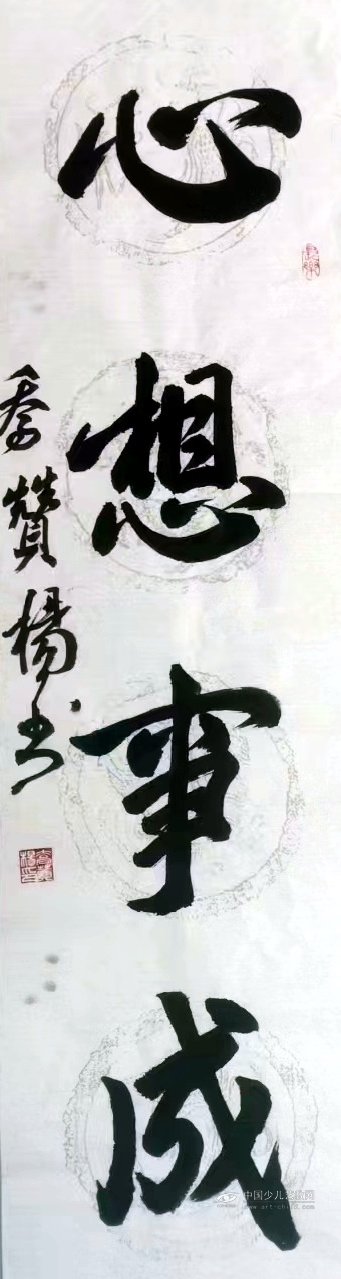 心想事成
季赞杨书
中国少儿艺教网
www.art-child.com